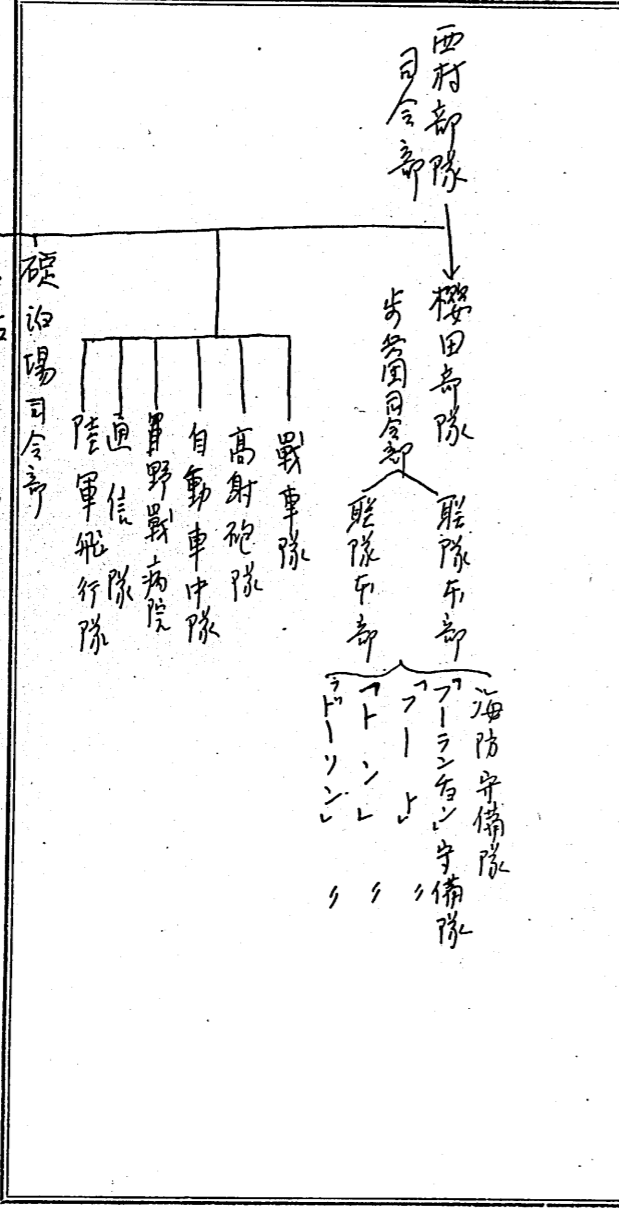 西村部隊
司令部
櫻田部隊
歩兵団司令部
聯隊本部
聯隊本部
海防守備隊
「フーランチョン」守備隊
「フート」〃
「トン」〃
「ドーソン」〃
戰車隊
高射砲隊
自動車中隊
野戰病院
通信隊
陸軍飛行隊
碇泊場司令部